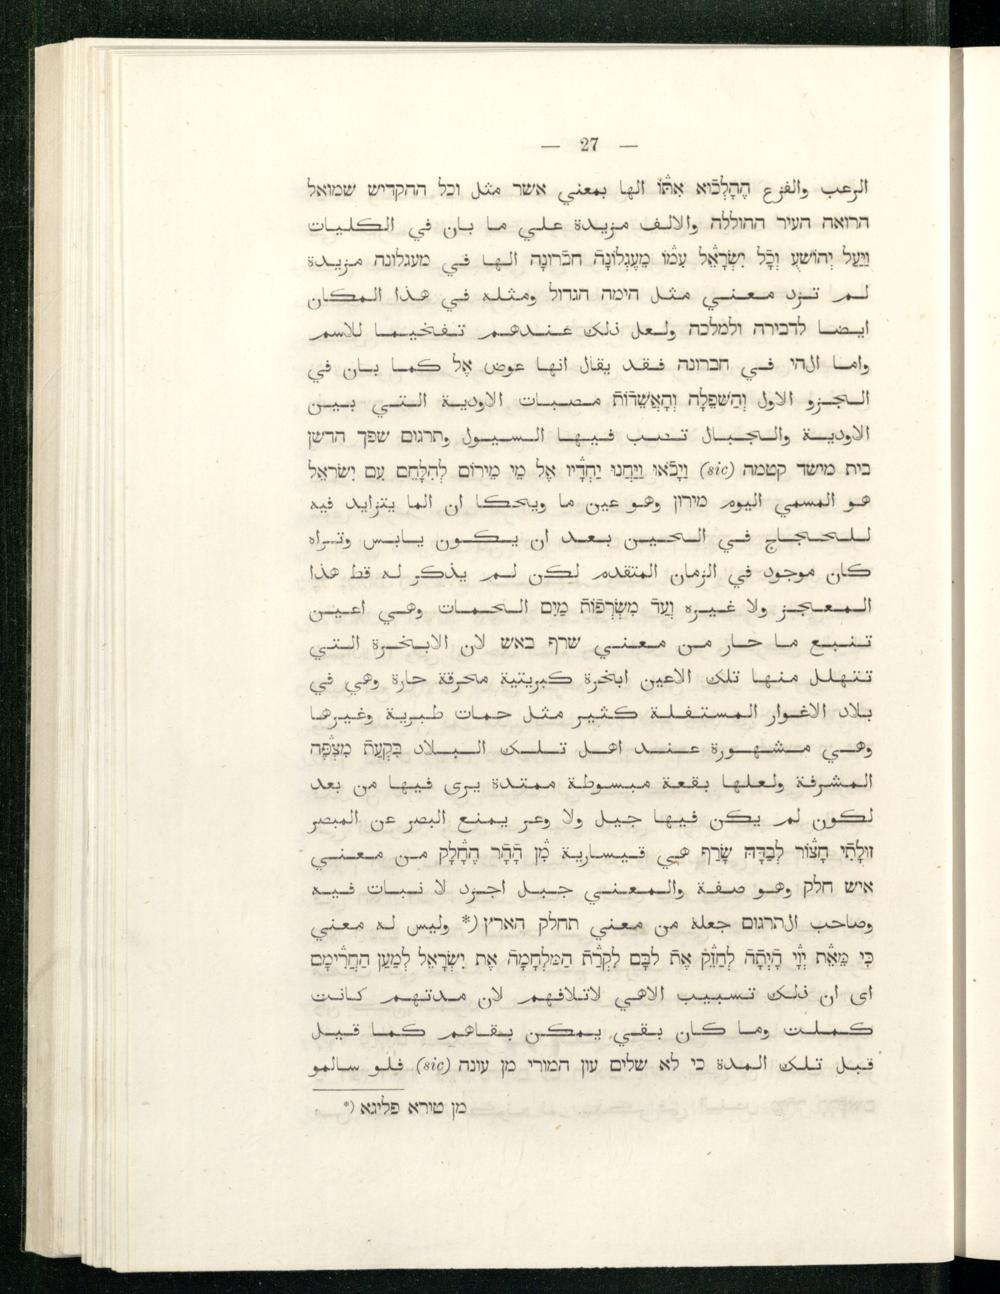 — 27 —
الرعب والفزع הֶהָלְכוּא אִתּוֹ الها بمعني אשר مثل וכל ההקדיש שמואל
הרואה העיר ההוללה والالف مزيدة علي ما بان في الكليات
וַיַּעַל יְהוֹשֻׁעַ וְכָל יִשְׂרָאֵל עִמּוֹ מֵעֶגְלוֹנָה חברונָה الها في מעגלונה مزيدة
لم تزد معني مثل הימה הגדול ومثله في هذا المكان
ايضا לדבירה ולמלכה ولعل ذلك عندهم تفخيما للاسم
واما الהי في חברונה فقد يقال انها عوض אֶל كما بان في
الجزو الاول וְהַשְּׁפֵלָה וְהָאֲשֵׁדוֹת مصبات الاودية التي بين
الاودية والجبال تصب فيها السيول وתרגום שפך הדשן
בית מישד קטמה (sic) וַיָּבֹאוּ וַיַּחֲנוּ יַחְדָּיו אֶל מֵי מֵירוֹם לְהִלָּחֵם עִם יִשְׂרָאֵל
هو المسمي اليوم מירון وهو عين ما ويحكا ان الما يتزايد فيه
للحجاج في الحين بعد ان يكون يابس وتراه
كان موجود في الزمان المتقدم لكن لم يذكر له قط هذا
المعجز ولا غيره וְעַד מִשְׂרְפוֹת מַיִם الحمات وهي اعين
تنبع ما حار من معني שרף באש لان الابخرة التي
تتهلل منها تلك الاعين ابخرة كبريتية محرقة حارة وهي في
بلاد الاغوار المستفلة كثير مثل حمات طبرية وغيرها
وهي مشهورة عند اهل تلك البلاد בִּקְעַת מִצְפֶּה
المشرفة ولعلها بقعة مبسوطة ممتدة يرى فيها من بعد
لكون لم يكن فيها جبل ولا وعر يمنع البصر عن المبصر
זוּלָתִי חָצוֹר לְבַדָּהּ שָׂרַף هي قيسارية מִן הָהָר הֶחָלָק من معني
איש חלק وهو صفة والمعني جبل اجرد لا نبات فيه
وصاحب الתרגום جعله من معني תחלק הארץ (* وليس له معني
כִּי מֵאֵת יְיָ הָיְתָה לְחַזֵּק אֶת לִבָּם לִקְרַת הַמִּלְחָמָה אֶת יִשְׂרָאֵל לְמַעַן הַחֲרִימָם
اى ان ذلك تسبيب الاهي لاتلافهم لان مدتهم كانت
كملت وما كان بقي يمكن بقاهم كما قيل
قبل تلك المدة כי לא שלים עון המורי מן עונה (sic) فلو سالمو
מן טורא פליגא (*